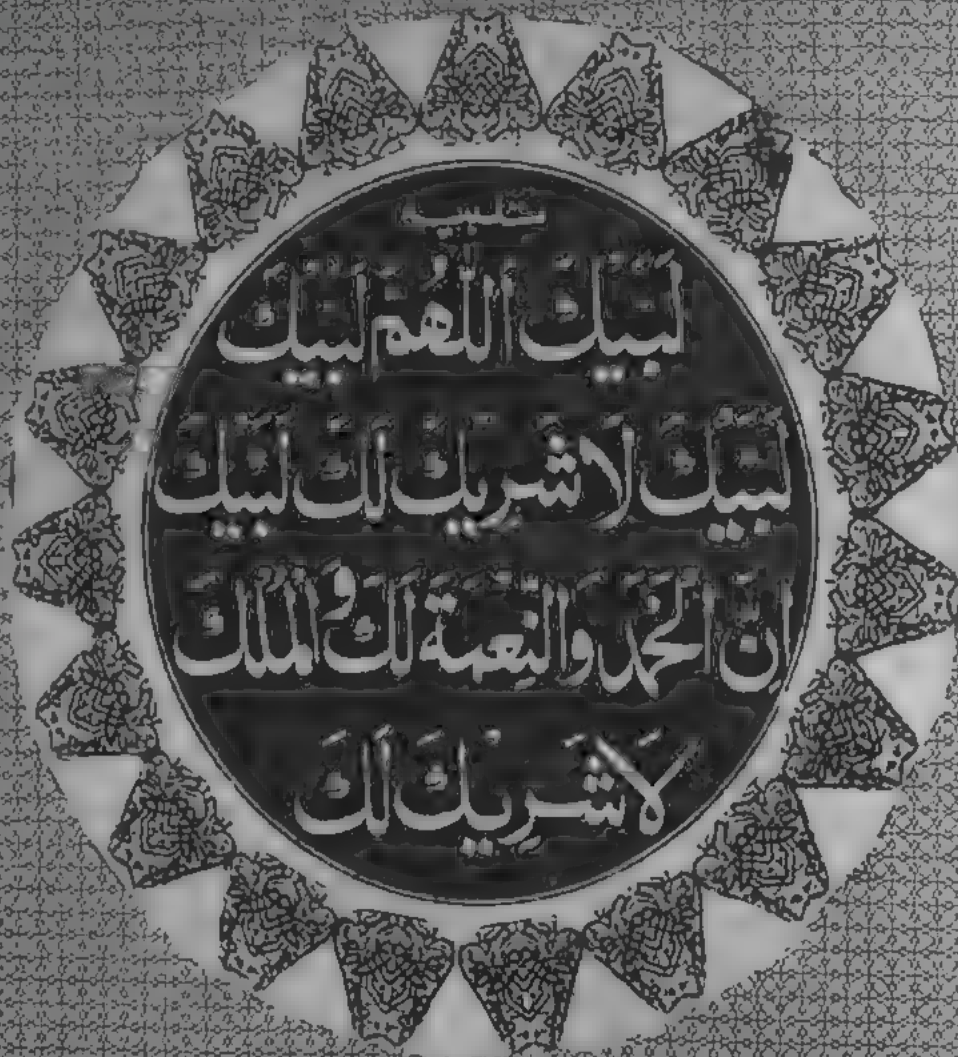 تلبیہ
لَبَّيْكَ اللّٰهُمَّ لَبَّيْكَ
لَبَّيْكَ لَا شَرِيْكَ لَكَ لَبَّيْكَ
اِنَّ الْحَمْدَ وَالنِّعْمَةَ لَكَ وَالْمُلْكَ
لَا شَرِيْكَ لَكَ